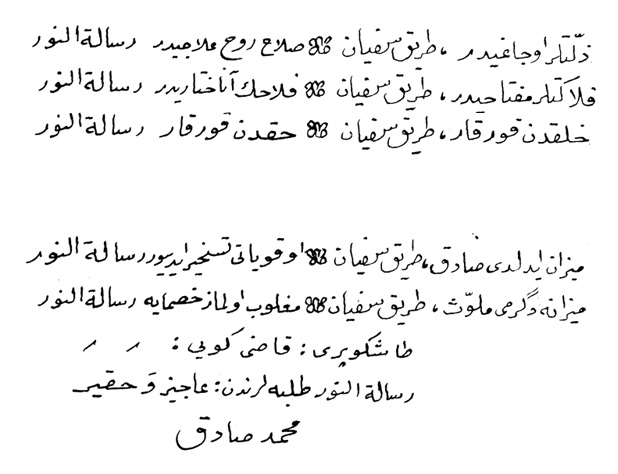 ذلّتلر اوجاغيدر ، طريق سفيان ❊ صلاح روح علاجيدر رسالة النور
فلاكتلر مفتاحيدر ، طريق سفيان ❊ فلاحك آناختاريدر رسالة النور
خلقدن قورقار ، طريق سفيان ❊ حقدن قورقار رسالة النور
ميزان ايدلدى صادق ، طريق سفيان ❊ او قوياتى تسخير ايدييور رسالة النور
ميزانه دگرمى ملوّث ، طريق سفيان ❊ مغلوب اولماز خصمايه رسالة النور
طاشكوپرى : قاضى كويى :
رسالة النور طلبه لرندن : عاجيز و حقير
محمد صادق